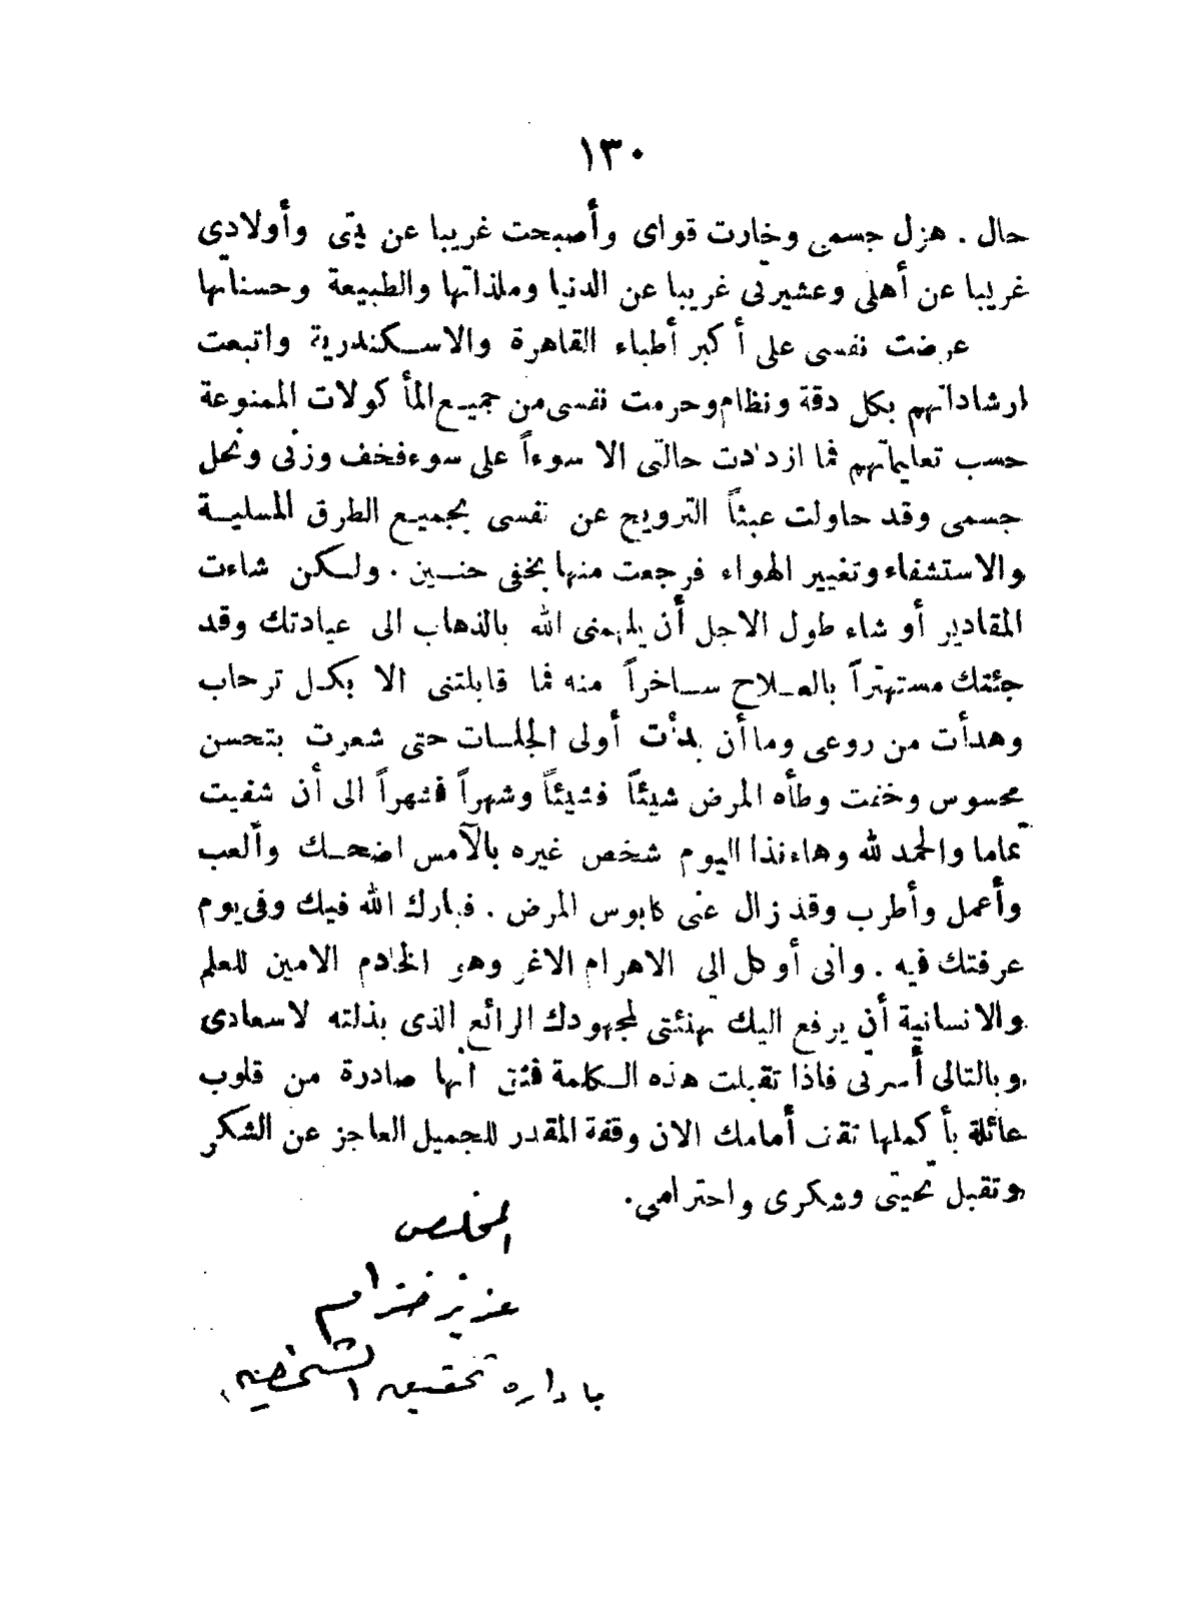 ١٣٠
حال . هزل جسمى وخارت قواى وأصبحت غريبا عن بيتى وأولادى
غريبا عن أهلى وعشيرتى غريبا عن الدنيا وملذاتها والطبيعة وحسناتها
عرضت نفسى على أكبر أطباء القاهرة والاسكندرية واتبعت
ارشاداتهم بكل دقة ونظام وحرمت نفسى من جميع المأكولات الممنوعة
حسب تعليماتهم فما ازددت حالتى الا سوءاً على سوء فخف وزنى ونحل
جسمى وقد حاولت عبثاً الترويح عن نفسى بجميع الطرق المسلية
والاستشفاء وتغيير الهواء فرجعت منها بخفى حنين . ولكن شاءت
المقادير أو شاء طول الاجل أن يلهمنى الله بالذهاب الى عيادتك وقد
جئتك مستهتراً بالعلاج ساخراً منه فما قابلتنى الا بكل ترحاب
وهدأت من روعى وما أن بدأت أولى الجلسات حتى شعرت بتحسن
محسوس وخفت وطأه المرض شيئاً فشيئاً وشهراً فشهراً الى أن شفيت
تماما والحمد لله وهاءنذا اليوم شخص غيره بالأمس اضحك وألعب
وأعمل وأطرب وقد زال عنى كابوس المرض . فبارك الله فيك وفى يوم
عرفتك فيه . وانى أوكل الى الاهرام الاغر وهو الخادم الامين للعلم
والانسانية أن يرفع اليك تهنئتى لمجهودك الرائع الذى بذلته لاسعادى
وبالتالى أسرتى فاذا تقبلت هذه الكلمة فثق انها صادرة من قلوب
عائلة بأكملها تقف أمامك الان وقفة المقدر للجميل العاجز عن الشكر
وتقبل تحيتى وشكرى واحترامى .
المخلص
عزيز خزام
بادارة تحقيق الشخصية